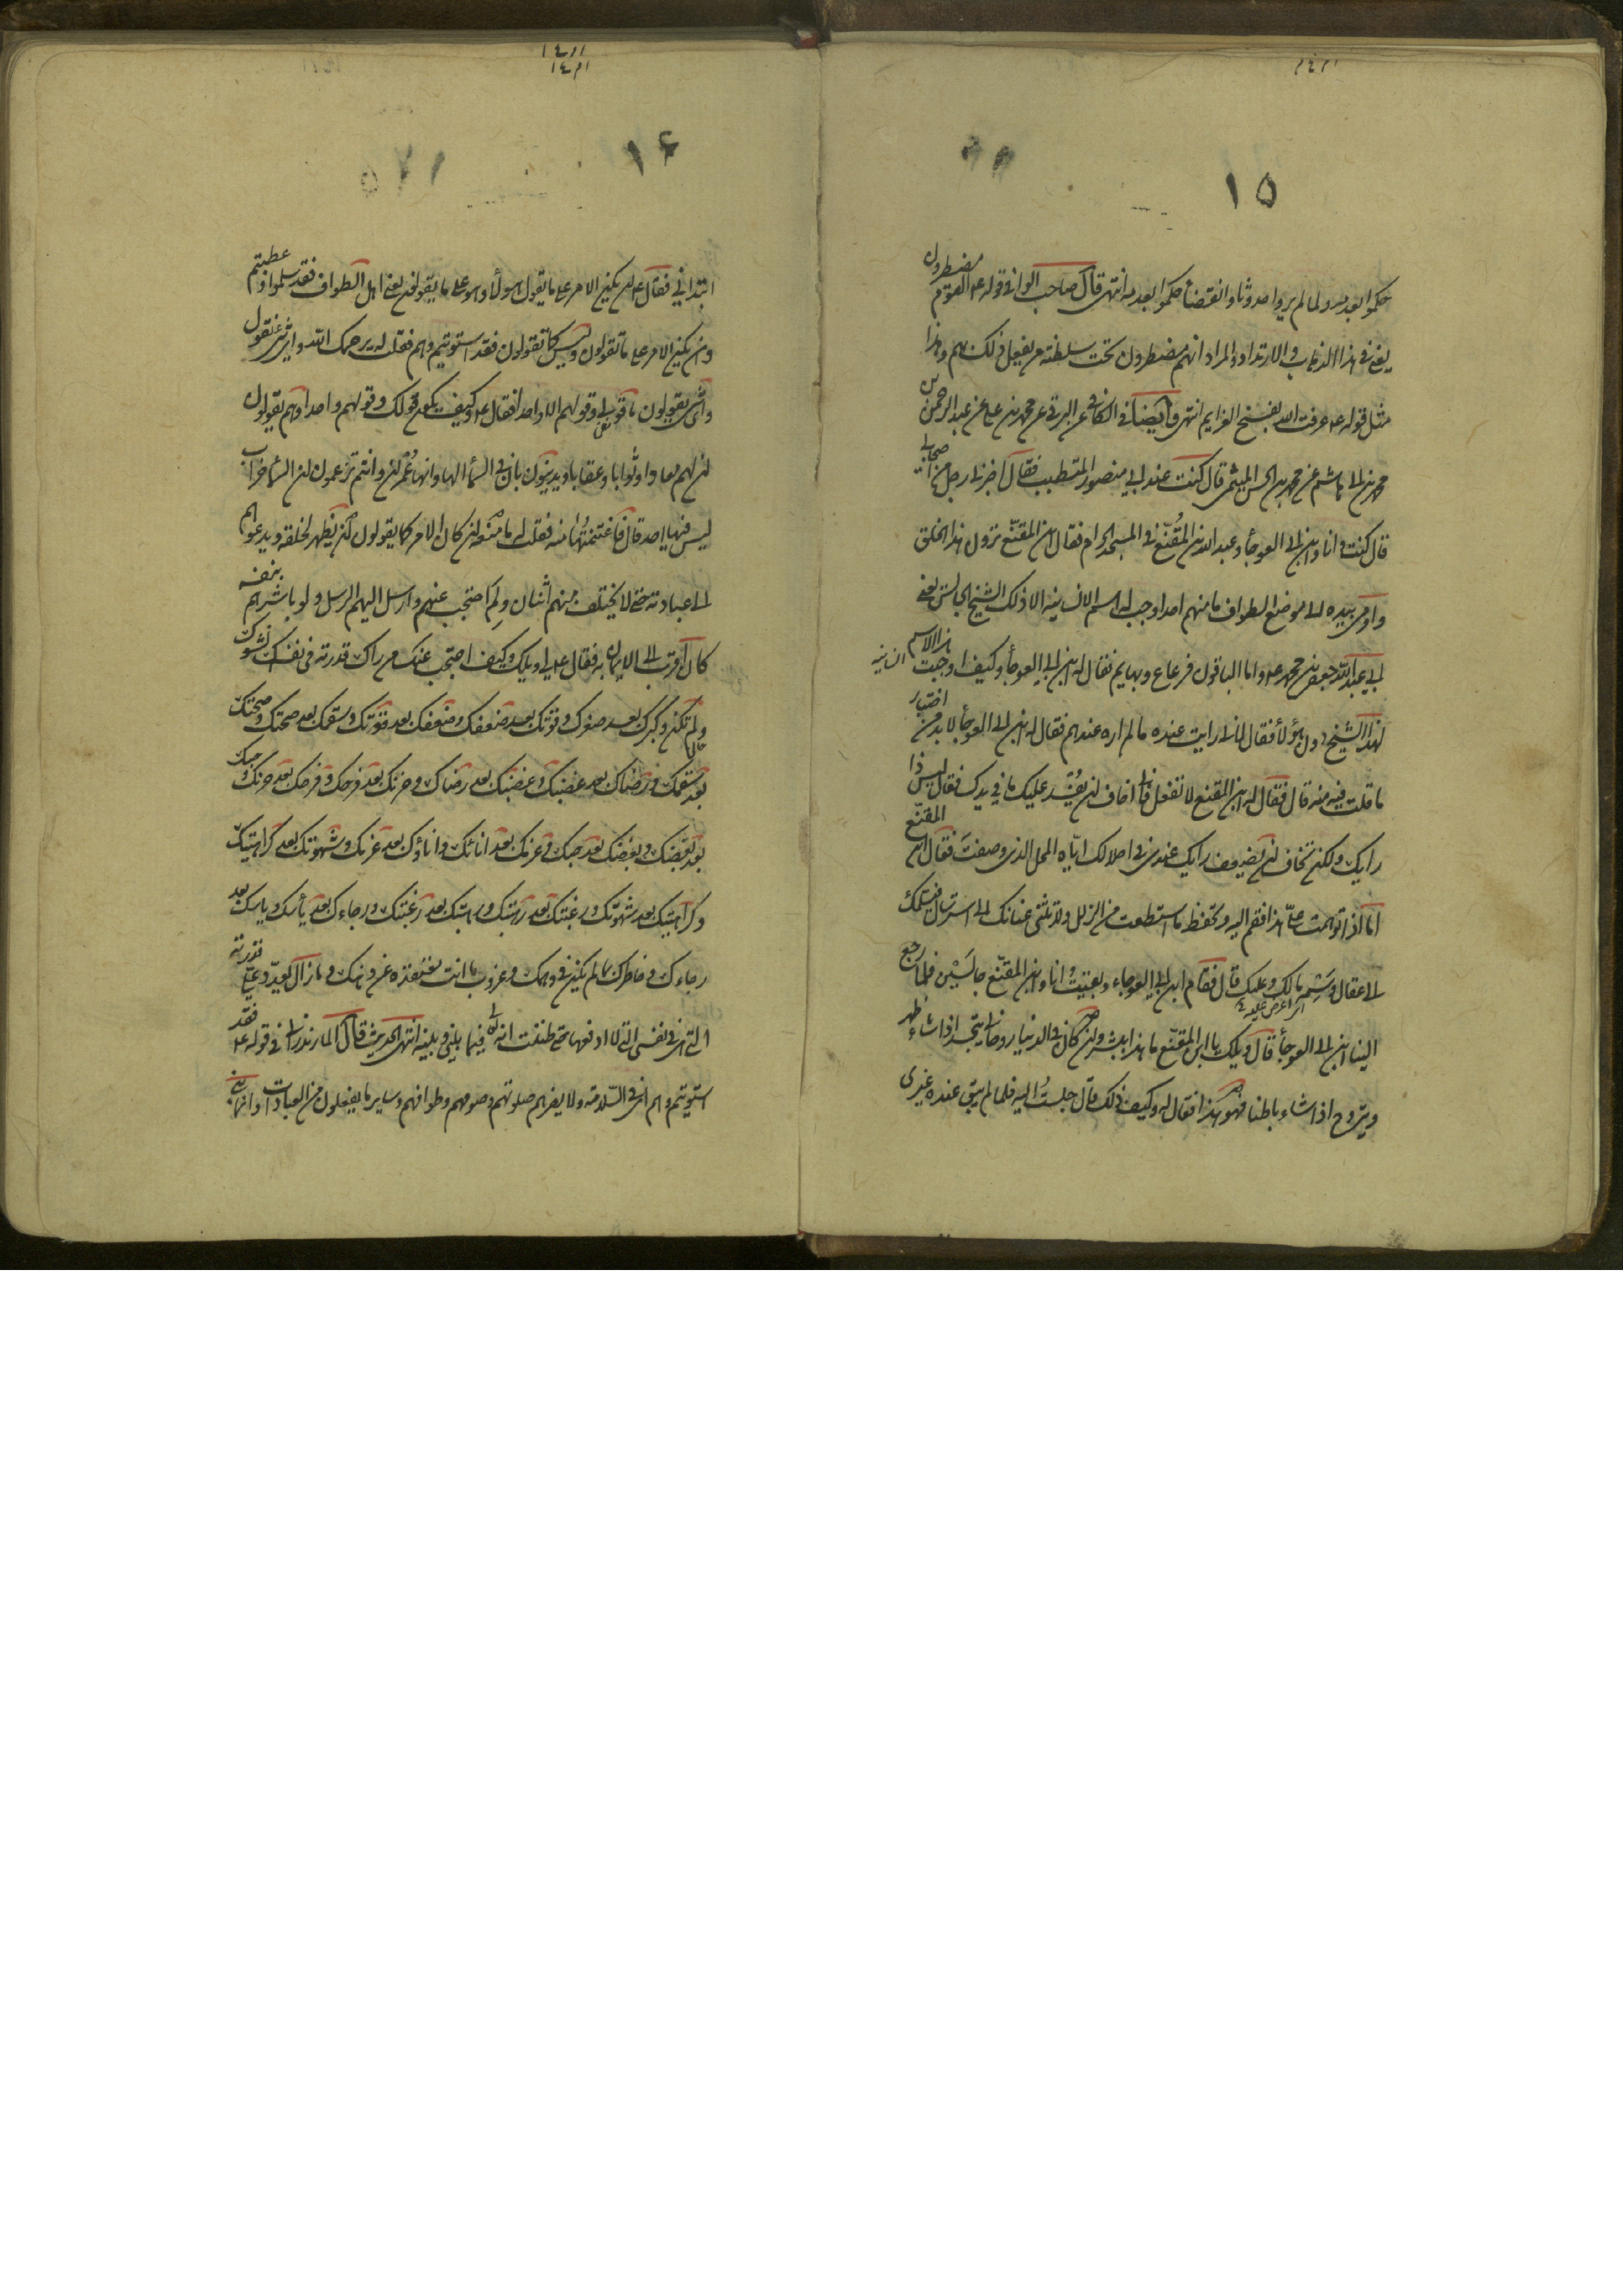 ١٥
حكموا بعدمه ولما لم يروا حدوثا وانقضاء حكموا بعدمه انتهى قال صاحب الوافي قوله ع القوم مضطرون
يعني في هذا الذهاب والارتداد والمراد انهم مضطرون تحت سلطنة من يفعل ذلك بهم وهذا
مثل قوله ع عرفت الله بفسخ العزايم انتهى وايضا في الكافي عن البرقي عن محمد بن علي عن عبد الرحمن بن
محمد بن ابي هاشم عن محمد بن الحسن الميثمي قال كنت عند ابي منصور المتطبب فقال اخبرني رجل من اصحابي
قال كنت انا وابن ابي العوجاء وعبد الله بن المقنع في المسجد الحرام فقال ابن المقنع ترون هذا الخلق
واومى بيده الى موضع الطواف ما منهم احد اوجب له اسم الانسانية الا ذلك الشيخ الجالس يعني
ابي عبد الله جعفر بن محمد ع واما الباقون فرعاع وبهايم فقال له ابن ابي العوجاء وكيف اوجبت هذا الاسم
الانسانية
لهذا الشيخ دون هؤلاء فقال لاني رايت عنده ما لم اره عندهم فقال له ابن ابي العوجاء لا بد من اختبار
ما قلت فيه منه قال فقال له ابن المقنع لا تفعل فاني اخاف ان يفسد عليك ما في يدك فقال ليس ذا
رايك ولكن تخاف ان يضعف رايك عندي في احلالك اياه المحل الذي وصفت فقال ابن المقنع
اما اذا توهمت علي هذا فقم اليه وتحفظ ما استطعت من الزلل ولا تثني عنانك الى استرسال فيسلمك
الى عقال وسمه ما لك وعليك قال فقام ابن ابي العوجاء وبقيت انا وابن المقنع جالسين فلما رجع
الينا ابن ابي العوجاء قال ويلك يا ابن المقنع ما هذا ببشر وان كان في الدنيا روحاني يتجسد اذا شاء ظاهرا
ويتروح اذا شاء باطنا فهو هذا فقال له وكيف ذلك قال جلست اليه فلما لم يبق عنده غيري
١۶
ابتداني فقال ع ان يكن الامر على ما يقول هؤلاء وهو على ما يقولون يعني اهل الطواف فقد سلموا وعطبتم
وان يكن الامر على ما تقولون وليس كما تقولون فقد استويتم وهم فقلت له يرحمك الله واي شئ نقول
واي شئ يقولون ما قولي وقولهم الا واحدا فقال ع وكيف يكون قولك وقولهم واحدا وهم يقولون
ان لهم معادا وثوابا وعقابا ويدينون بان في السماء الها وانها عمران وانتم تزعمون ان السماء خراب
ليس فيها احد قال فاغتنمتها منه فقلت له ما منعه ان كان الامر كما يقولون ان يظهر لخلقه ويدعوهم
الى عبادته حتى لا يختلف منهم اثنان ولم احتجب عنهم وارسل اليهم الرسل ولو باشرهم بنفسه
كان اقرب الى الايمان به فقال ع لي ويلك وكيف احتجب عنك من اراك قدرته في نفسك نشوك
ولم تكن وكبرك بعد صغرك وقوتك بعد ضعفك وضعفك بعد قوتك وسقمك بعد صحتك وصحتك
بعد سقمك ورضاك بعد غضبك وغضبك بعد رضاك وحزنك بعد فرحك وفرحك بعد حزنك وحبك
بعد بغضك وبغضك بعد حبك وعزمك بعد اناتك واناتك بعد عزمك وشهوتك بعد كراهيتك
وكراهيتك بعد شهوتك ورغبتك بعد رهبتك ورهبتك بعد رغبتك ورجاءك بعد يأسك ويأسك بعد
رجاءك وخاطرك بما لم يكن في وهمك وعزوب ما انت معتقده عن ذهنك وما زال يعدد علي قدرته
التي هي في نفسي التي لا ادفعها حتى ظننت انه سيظهر فيما بيني وبينه انتهى الحديث قال المازندراني في قوله ع فقد
استويتم وهم اي في السلامة ولا يضرهم صلوتهم وصومهم وطوافهم وساير ما يفعلون من العبادات